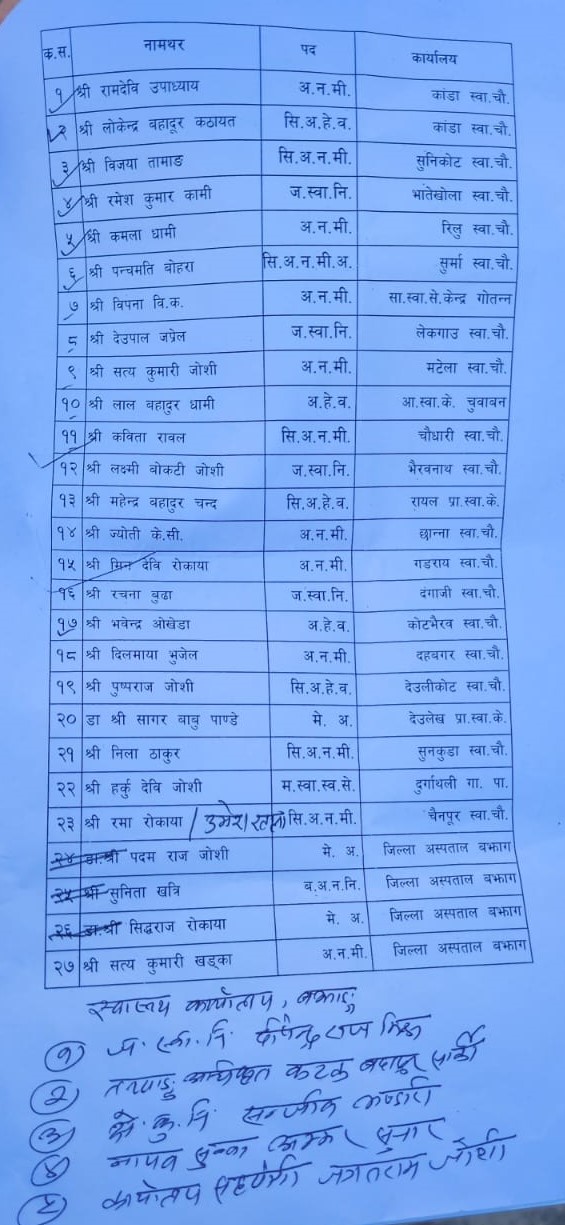 क.स. नामथर पद कार्यालय
१ श्री रामदेवि उपाध्याय अ.न.मी. कांडा स्वा.चौ.
२ श्री लोकेन्द्र बहादूर कठायत सि.अ.हे.व. कांडा स्वा.चौ.
३ श्री विजया तामाङ सि.अ.न.मी. सुनिकोट स्वा.चौ.
४ श्री रमेश कुमार कामी ज.स्वा.नि. भातेखोला स्वा.चौ.
५ श्री कमला धामी अ.न.मी. रिलु स्वा.चौ.
६ श्री पन्चमति बोहरा सि.अ.न.मी.अ. सुर्मा स्वा.चौ.
७ श्री विपना वि.क. अ.न.मी. सा.स्वा.से.केन्द्र गोतन्न
८ श्री देउपाल जप्रेल ज.स्वा.नि. लेकगाउ स्वा.चौ.
९ श्री सत्य कुमारी जोशी अ.न.मी. मटेला स्वा.चौ.
१० श्री लाल बहादुर धामी अ.हे.व. आ.स्वा.के. चुवाबन
११ श्री कविता रावल सि.अ.न.मी. चौधारी स्वा.चौ.
१२ श्री लक्ष्मी बोकटी जोशी ज.स्वा.नि. भैरवनाथ स्वा.चौ.
१३ श्री महेन्द्र बहादुर चन्द सि.अ.हे.व. रायल प्रा.स्वा.के.
१४ श्री ज्योती के.सी. अ.न.मी. छान्ना स्वा.चौ.
१५ श्री मिन देवि रोकाया अ.न.मी. गडराय स्वा.चौ.
१६ श्री रचना बुढा ज.स्वा.नि. दंगाजी स्वा.चौ.
१७ श्री भवेन्द्र ओखेडा अ.हे.व. कोटभैरव स्वा.चौ.
१८ श्री दिलमाया भुजेल अ.न.मी. दहबगर स्वा.चौ.
१९ श्री पुष्पराज जोशी सि.अ.हे.व. देउलीकोट स्वा.चौ.
२० डा श्री सागर बाबु पाण्डे मे. अ. देउलेख प्रा.स्वा.के.
२१ श्री निला ठाकुर सि.अ.न.मी. सुनकुडा स्वा.चौ.
२२ श्री हर्कु देवि जोशी म.स्वा.स्व.से. दुर्गाथली गा. पा.
२३ श्री रमा रोकाया / उमेश सि.अ.न.मी. चैनपूर स्वा.चौ.
२४ डा.श्री पदम राज जोशी मे. अ. जिल्ला अस्पताल बझाग
२५ श्री सुनिता खत्रि ब.अ.न.नि. जिल्ला अस्पताल बझाग
२६ डा.श्री सिद्धराज रोकाया मे. अ. जिल्ला अस्पताल बझाग
२७ श्री सत्य कुमारी खड्का अ.न.मी. जिल्ला अस्पताल बझाग
स्वास्थ्य कार्यालय, बझाङ
१) दीपेन्द्र राज
२) बहादुर सार्की
३) क्षे.कु.नि भण्डारी
४) सुनार
५) कार्यालय सहयोगी जगतराम जोशी